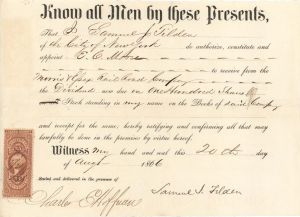 Know all Men by these Presents,
That I Samuel J Tilden
of the City of New York do authorize, constitute and
appoint E. C. to receive from the
Morris & Essex Rail Road Company
the Dividend now due on One Hundred Shares
Stock standing in my name on the Books of said Company
and receipt for the same; hereby ratifying and confirming all that may
lawfully be done in the premises by virtue hereof.
Witness my hand and seal this 20th day
of Augt 1866
Sealed and delivered in the presence of
Charles E Hoffman
Samuel J. Tilden